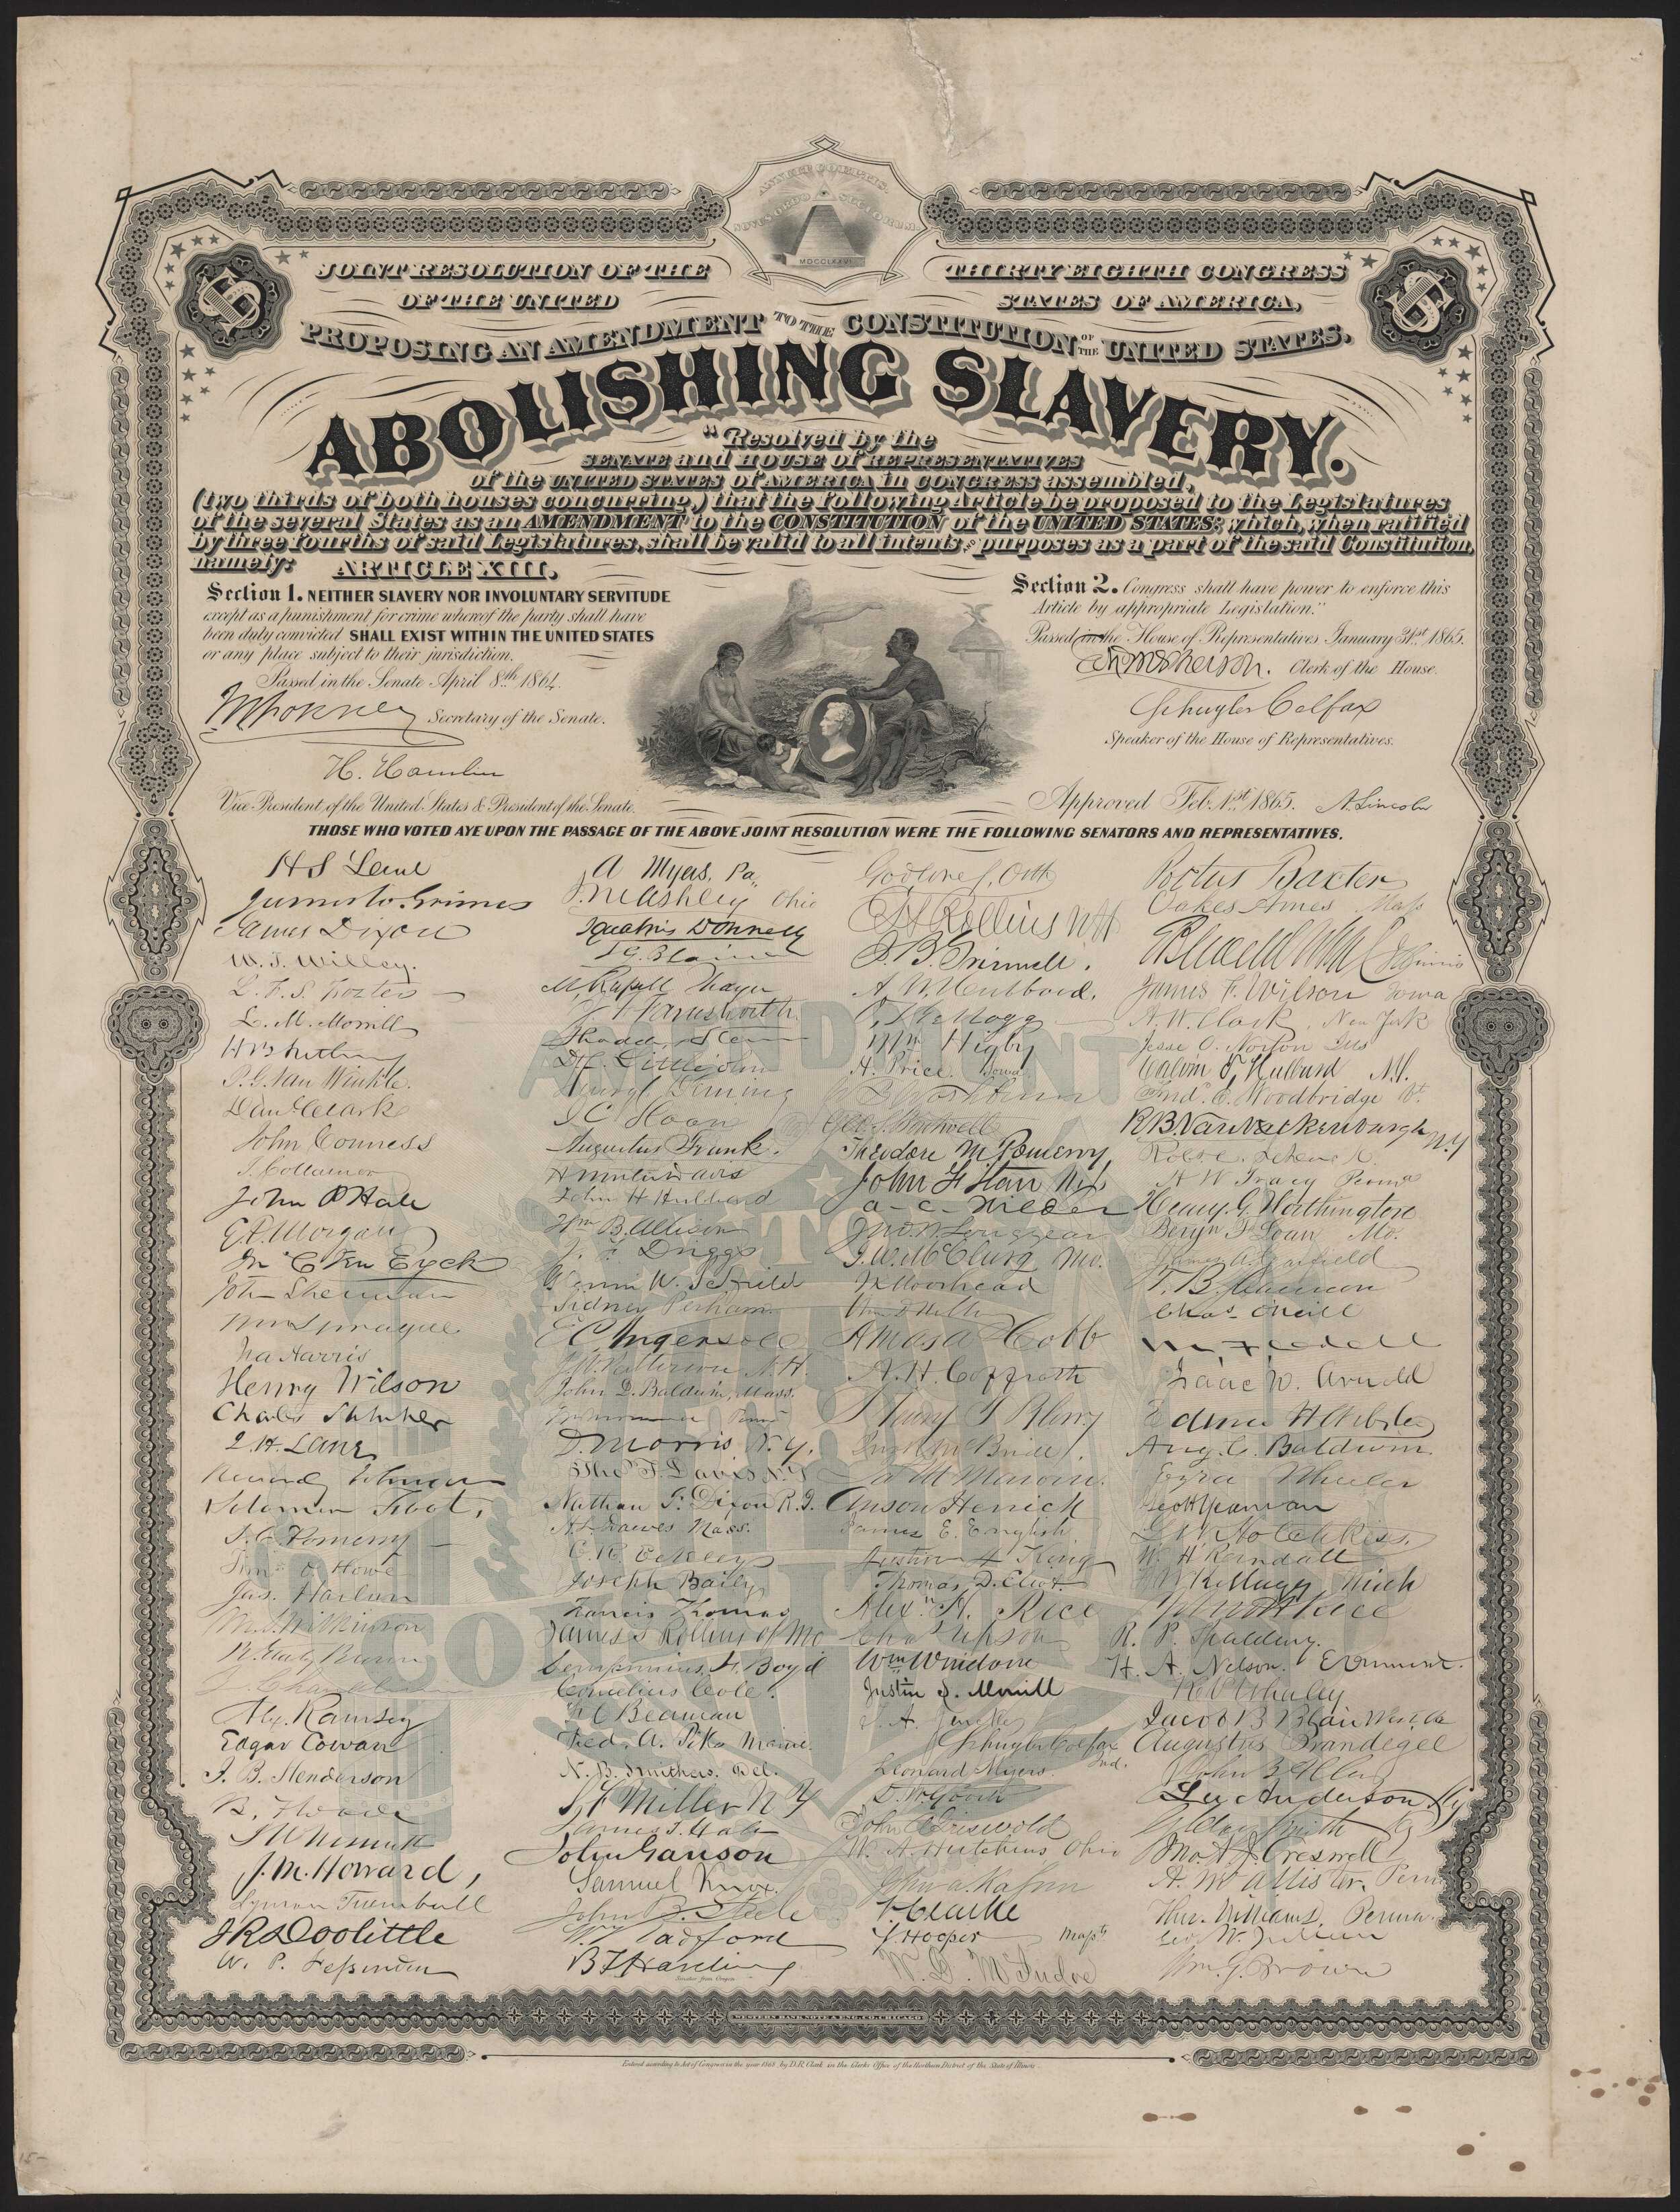 ANNUIT COEPTIS.
NOVUS ORDO SECLORUM.
MDCCLXXVI
US
US
JOINT RESOLUTION OF THE THIRTY EIGHTH CONGRESS
OF THE UNITED STATES OF AMERICA,
PROPOSING AN AMENDMENT TO THE CONSTITUTION OF THE UNITED STATES.
ABOLISHING SLAVERY.
"Resolved by the
SENATE and HOUSE of REPRESENTATIVES
of the UNITED STATES of AMERICA in CONGRESS assembled,
(two thirds of both houses concurring,) that the following Article be proposed to the Legislatures
of the several States as an AMENDMENT to the CONSTITUTION of the UNITED STATES; which, when ratified
by three fourths of said Legislatures, shall be valid to all intents and purposes as a part of the said Constitution,
namely: ARTICLE XIII.
Section 1. NEITHER SLAVERY NOR INVOLUNTARY SERVITUDE
except as a punishment for crime whereof the party shall have
been duly convicted SHALL EXIST WITHIN THE UNITED STATES
or any place subject to their jurisdiction.
Passed in the Senate April 8th 1864.
Secretary of the Senate.
H. Hamlin
Vice-President of the United States & President of the Senate.
Section 2. Congress shall have power to enforce this
Article by appropriate Legislation."
Passed in the House of Representatives January 31st 1865.
Clerk of the House.
Schuyler Colfax
Speaker of the House of Representatives.
Approved Feb. 1st 1865. A. Lincoln
THOSE WHO VOTED AYE UPON THE PASSAGE OF THE ABOVE JOINT RESOLUTION WERE THE FOLLOWING SENATORS AND REPRESENTATIVES.
AMENDMENT
TO
THE
CONSTITUTION
H S Lane
James W. Grimes
James Dixon
W. T. Willey.
L. F. S. Foster
L. M. Morrill
P. G. Van Winkle.
Dan Clark
John Conness
J. Collamer
John P Hale
E. D. Morgan
Jn C Ten Eyck
John Sherman
Wm Sprague
Ira Harris
Henry Wilson
Charles Sumner
J. H. Lane
Reverdy Johnson
Solomon Foot,
S. C. Pomeroy
Tim O Howe
Jas. Harlan
M. S. Wilkinson
B. Gratz Brown
Z. Chandler
Alex. Ramsey
Edgar Cowan
J. B. Henderson
B. F Wade
J W Nesmith
J. M. Howard,
Lyman Trumbull
J R Doolittle
W. P. Fessenden
A Myers, Pa.
J. M Ashley Ohio
Ignatius Donnelly
J G. Blaine
M. Russell Thayer
J F Farnsworth
Thaddeus Stevens
D C Littlejohn
Henry C Deming
J C Sloan
Augustus Frank.
H Winter Davis
John H Hubbard
Wm B. Allison
J. F Driggs
Glenni W. Scofield
Sidney Perham
E C Ingersoll
J. W. Patterson N. H.
John D. Baldwin, Mass.
D. Morris N. Y.
Tho T. Davis N. Y
Nathan F. Dixon R. I.
H L Dawes Mass.
E. R. Eckley
Joseph Baily
Francis Thomas
James S Rollins of Mo
Sempronius H. Boyd
Cornelius Cole.
F C Beaman
Fred. A. Pike Maine.
N. B. Smithers. Del.
S. F Miller N Y
James T. Hale
John Ganson
Samuel Knox.
John B. Steele
W Radford
B F Harding
Senator from Oregon
Godlove S. Orth
E H Rollins NH
J. B. Grinnell.
A. W. Hubbard.
Wm Higby
H. Price. Iowa
E B Washburne
Geo S. Boutwell
Theodore M. Pomeroy
John F Starr N. J.
A. C. Wilder
Jno. W. Longyear
J. W. McClurg Mo.
J K Moorhead
Amasa Cobb
A. H. Coffroth
Henry T Blow
James M Marvin.
Anson Herrick
James E. English
Austin A King
Thomas D. Eliot
Alex H. Rice
Chas Upson
Wm Windom
Justin S. Morrill
Schuyler Colfax Ind.
Leonard Myers.
D. W. Gooch
John A Griswold
W. A. Hutchins Ohio
John A. Kasson
F. Clarke
S. Hooper Massts
Portus Baxter
Oakes Ames Mass
James F. Wilson Iowa
A. W. Clark, New York
Jesse O. Norton Ills
Calvin T. Hulburd N.Y.
Fred. E. Woodbridge Vt.
R B. Van Valkenburgh N. Y
Robt C. Schenck
H W Tracy Penna
Henry G. Worthington
Benjn F Loan Mo.
James A. Garfield
T. B. Shannon
Chas. O'Neill
Isaac N. Arnold
Edwin H Webster
Aug. C. Baldwin.
Ezra Wheeler
Geo H Yeaman
G. W. Hotchkiss.
W H Randall
F W Kellogg Mich
John H Rice
R. P. Spalding.
H. A. Nelson. E Dumont.
K V Whaley
Jacob B Blair West. Va
Augustus Brandegee
John B Alley
Lu. Anderson Ky
G Clay Smith Ky
Jno. A. J. Creswell
A. McAllister, Penn
Tho. Williams, Penna.
Geo. W. Julian
Wm. G. Brown
WESTERN BANK NOTE & ENG. CO. CHICAGO
Entered according to Act of Congress in the year 1868 by D.R. Clark in the Clerks Office of the Northern District of the State of Illinois.